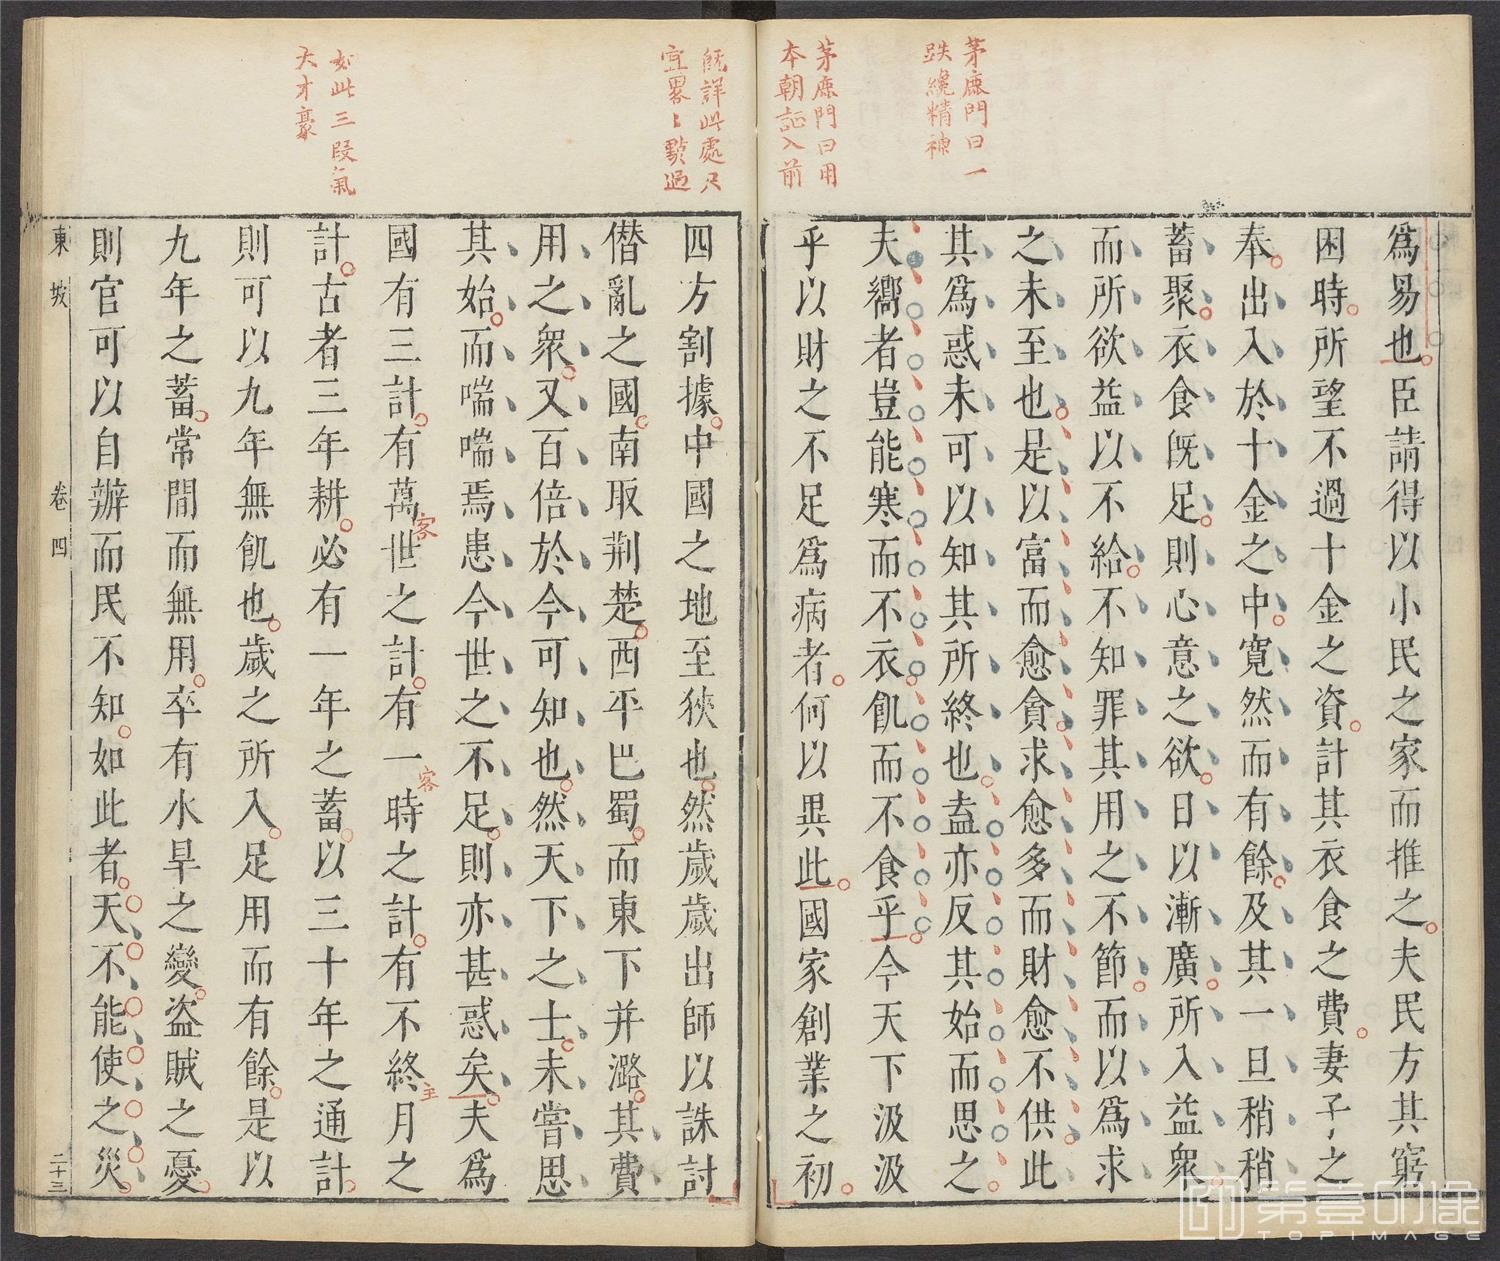 茅鹿門曰一
跌纔精神
茅鹿門曰用
本朝証入前
爲易也臣請得以小民之家而推之夫民方其窮
困時所望不過十金之資計其衣食之費妻子之
奉出入於十金之中寛然而有餘及其一旦稍稍
蓄聚衣食旣足則心意之欲日以漸廣所入益衆
而所欲益以不給不知罪其用之不節而以爲求
之未至也是以富而愈貪求愈多而財愈不供此
其爲惑未可以知其所終也盍亦反其始而思之
夫嚮者豈能寒而不衣飢而不食乎今天下汲汲
乎以財之不足爲病者何以異此國家創業之初
旣詳此處只
宜畧畧點過
如此三段氣
大才豪
四方割據中國之地至狹也然歲歲出師以誅討
僭亂之國南取荆楚西平巴蜀而東下并潞其費
用之衆又百倍於今可知也然天下之士未嘗思
其始而喘喘焉患今世之不足則亦甚惑矣夫爲
國有三計有萬世之計有一時之計有不終月之
客
客
主
計古者三年耕必有一年之蓄以三十年之通計
則可以九年無飢也歲之所入足用而有餘是以
九年之蓄常閒而無用卒有水旱之變盜賊之憂
則官可以自辦而民不知如此者天不能使之災
東坡
卷四
二十三
第壹印像
TOPIMAGE